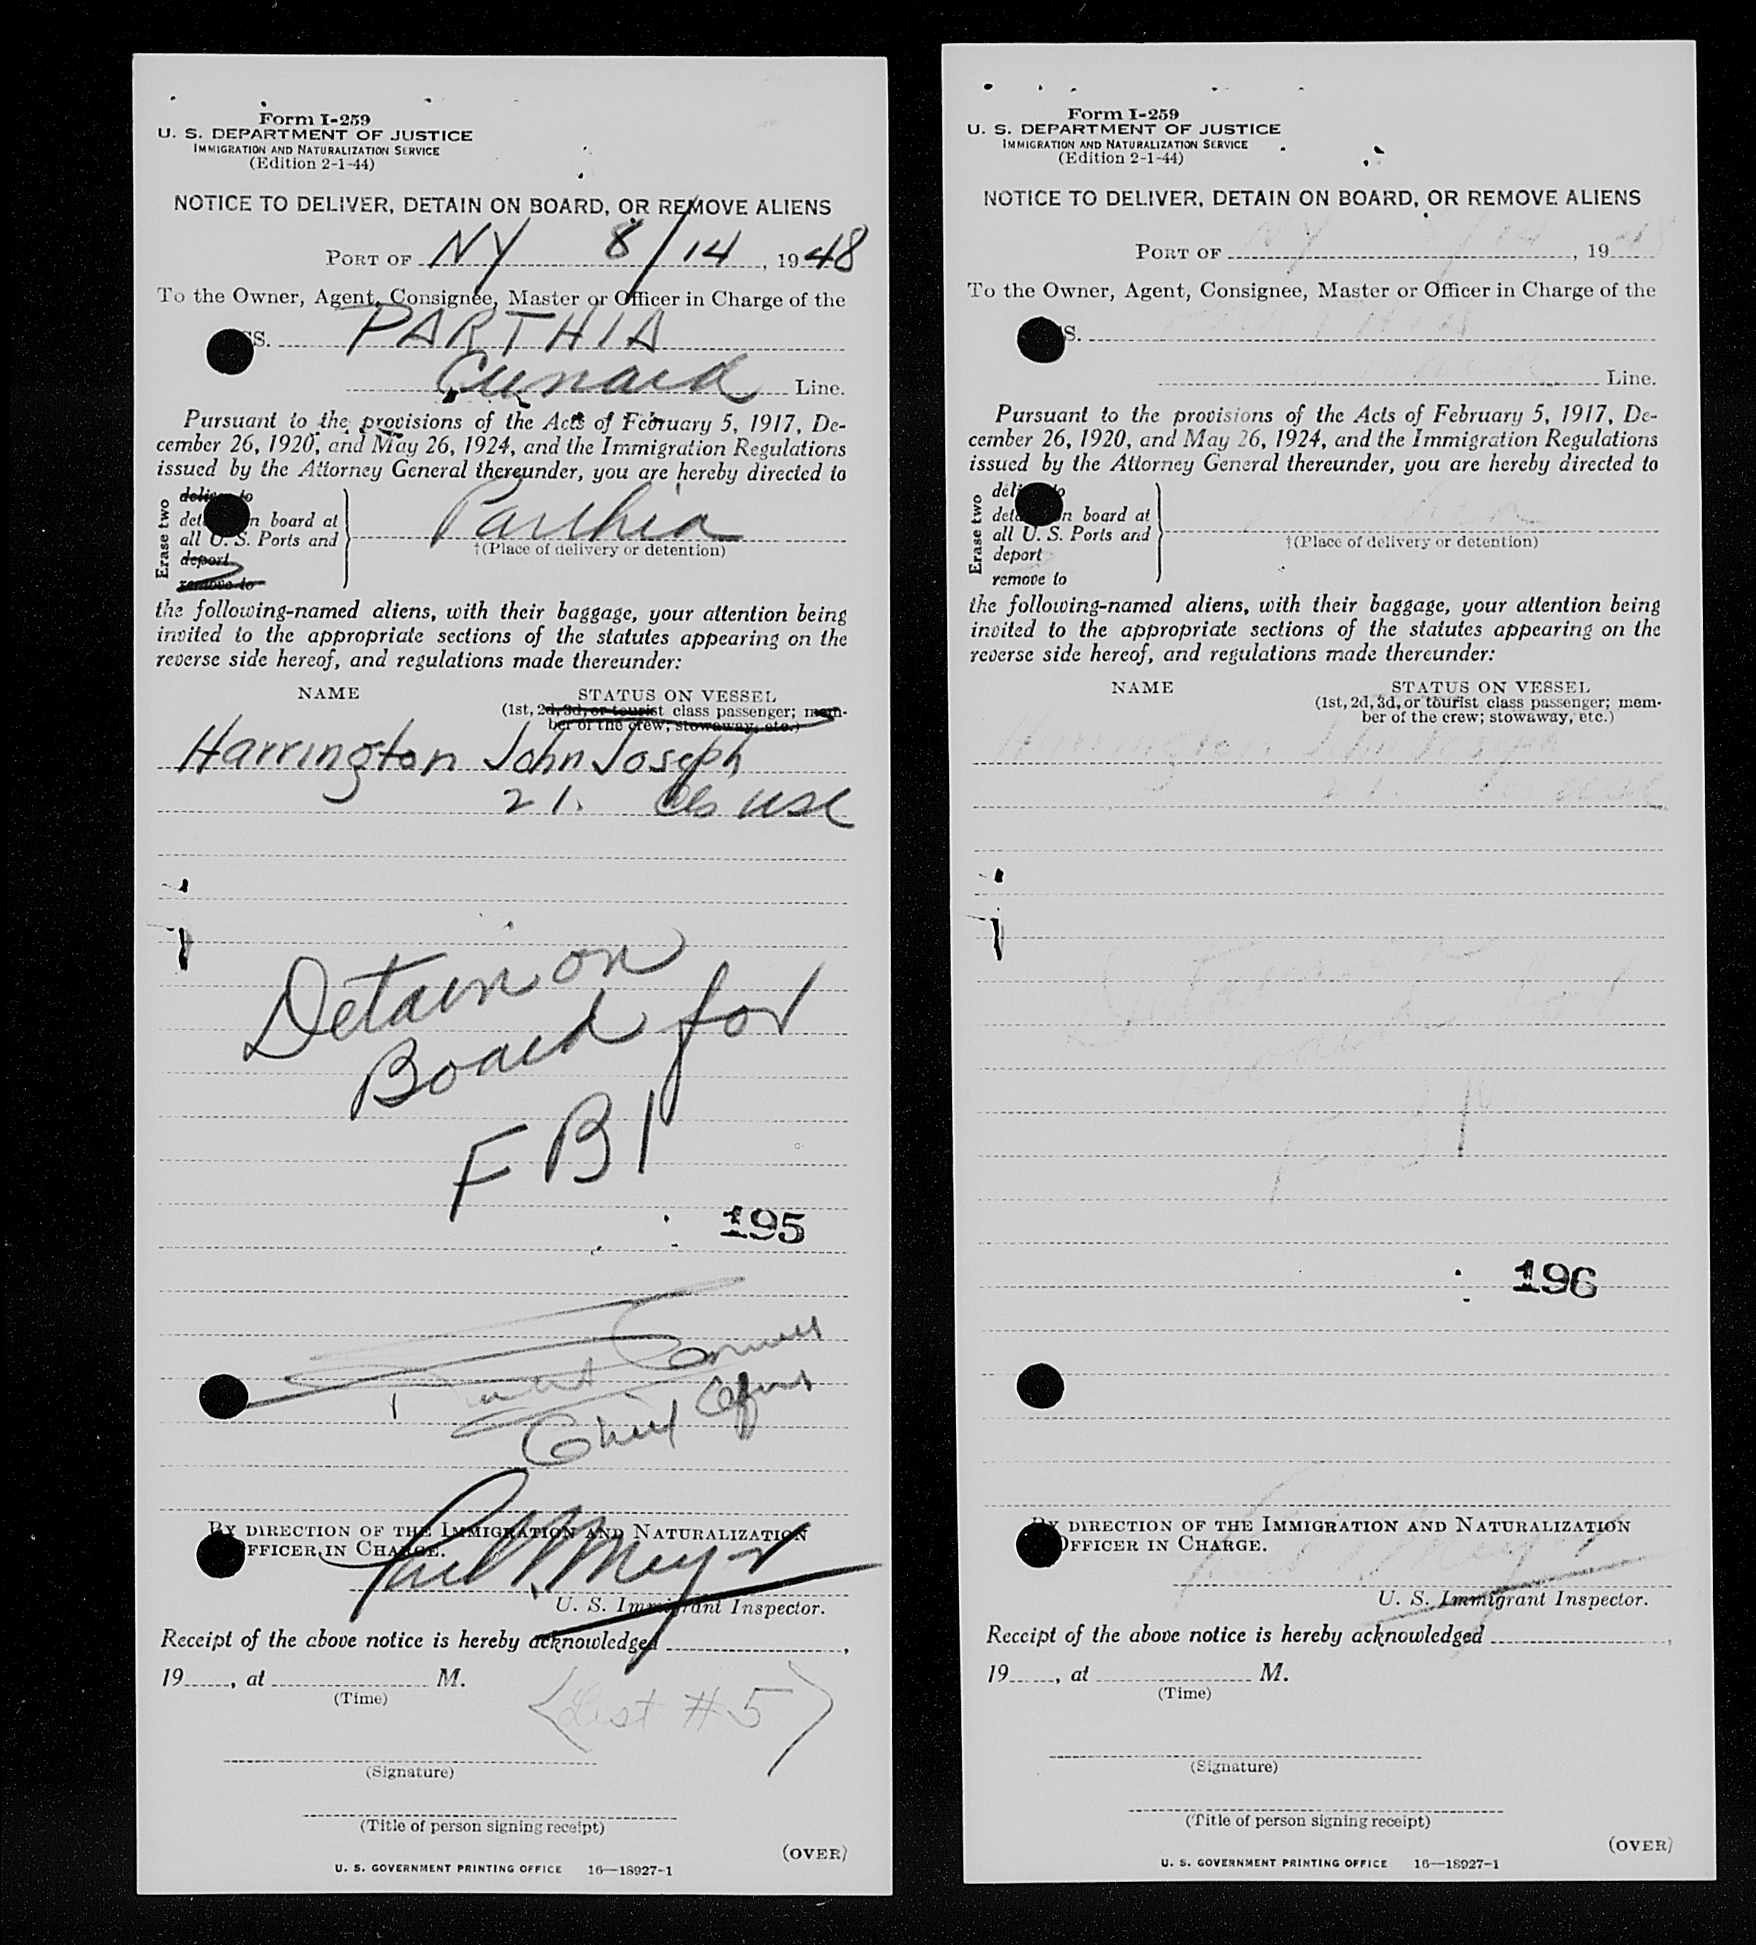 Form I-259
U. S. DEPARTMENT OF JUSTICE
IMMIGRATION AND NATURALIZATION SERVICE
(Edition 2-1-44)
NOTICE TO DELIVER, DETAIN ON BOARD, OR REMOVE ALIENS
PORT OF NY 8/14, 1948
To the Owner, Agent, Consignee, Master or Officer in Charge of the
SS. PARTHIA
Cunard Line.
Pursuant to the provisions of the Acts of February 5, 1917, De-
cember 26, 1920, and May 26, 1924, and the Immigration Regulations
issued by the Attorney General thereunder, you are hereby directed to
Erase two
deliver to
detain on board at
all U. S. Ports and
deport
remove to
Parthia
†(Place of delivery or detention)
the following-named aliens, with their baggage, your attention being
invited to the appropriate sections of the statutes appearing on the
reverse side hereof, and regulations made thereunder:
NAME STATUS ON VESSEL
(1st, 2d, 3d, or tourist class passenger; mem-
ber of the crew; stowaway, etc.)
Harrington John Joseph
21. USC
Detain on
Board for
FBI
195
Chief
BY DIRECTION OF THE IMMIGRATION AND NATURALIZATION
OFFICER IN CHARGE.
U. S. Immigrant Inspector.
Receipt of the above notice is hereby acknowledged ,
19 , at M.
(Time)
(List #5)
(Signature)
(Title of person signing receipt)
(OVER)
U. S. GOVERNMENT PRINTING OFFICE 16—18927-1
Form I-259
U. S. DEPARTMENT OF JUSTICE
IMMIGRATION AND NATURALIZATION SERVICE
(Edition 2-1-44)
NOTICE TO DELIVER, DETAIN ON BOARD, OR REMOVE ALIENS
PORT OF NY 8/14, 1948
To the Owner, Agent, Consignee, Master or Officer in Charge of the
SS. PARTHIA
Line.
Pursuant to the provisions of the Acts of February 5, 1917, De-
cember 26, 1920, and May 26, 1924, and the Immigration Regulations
issued by the Attorney General thereunder, you are hereby directed to
Erase two
deliver to
detain on board at
all U. S. Ports and
deport
remove to
†(Place of delivery or detention)
the following-named aliens, with their baggage, your attention being
invited to the appropriate sections of the statutes appearing on the
reverse side hereof, and regulations made thereunder:
NAME STATUS ON VESSEL
(1st, 2d, 3d, or tourist class passenger; mem-
ber of the crew; stowaway, etc.)
Harrington John Joseph
21.
196
BY DIRECTION OF THE IMMIGRATION AND NATURALIZATION
OFFICER IN CHARGE.
U. S. Immigrant Inspector.
Receipt of the above notice is hereby acknowledged ,
19 , at M.
(Time)
(Signature)
(Title of person signing receipt)
(OVER)
U. S. GOVERNMENT PRINTING OFFICE 16—18927-1